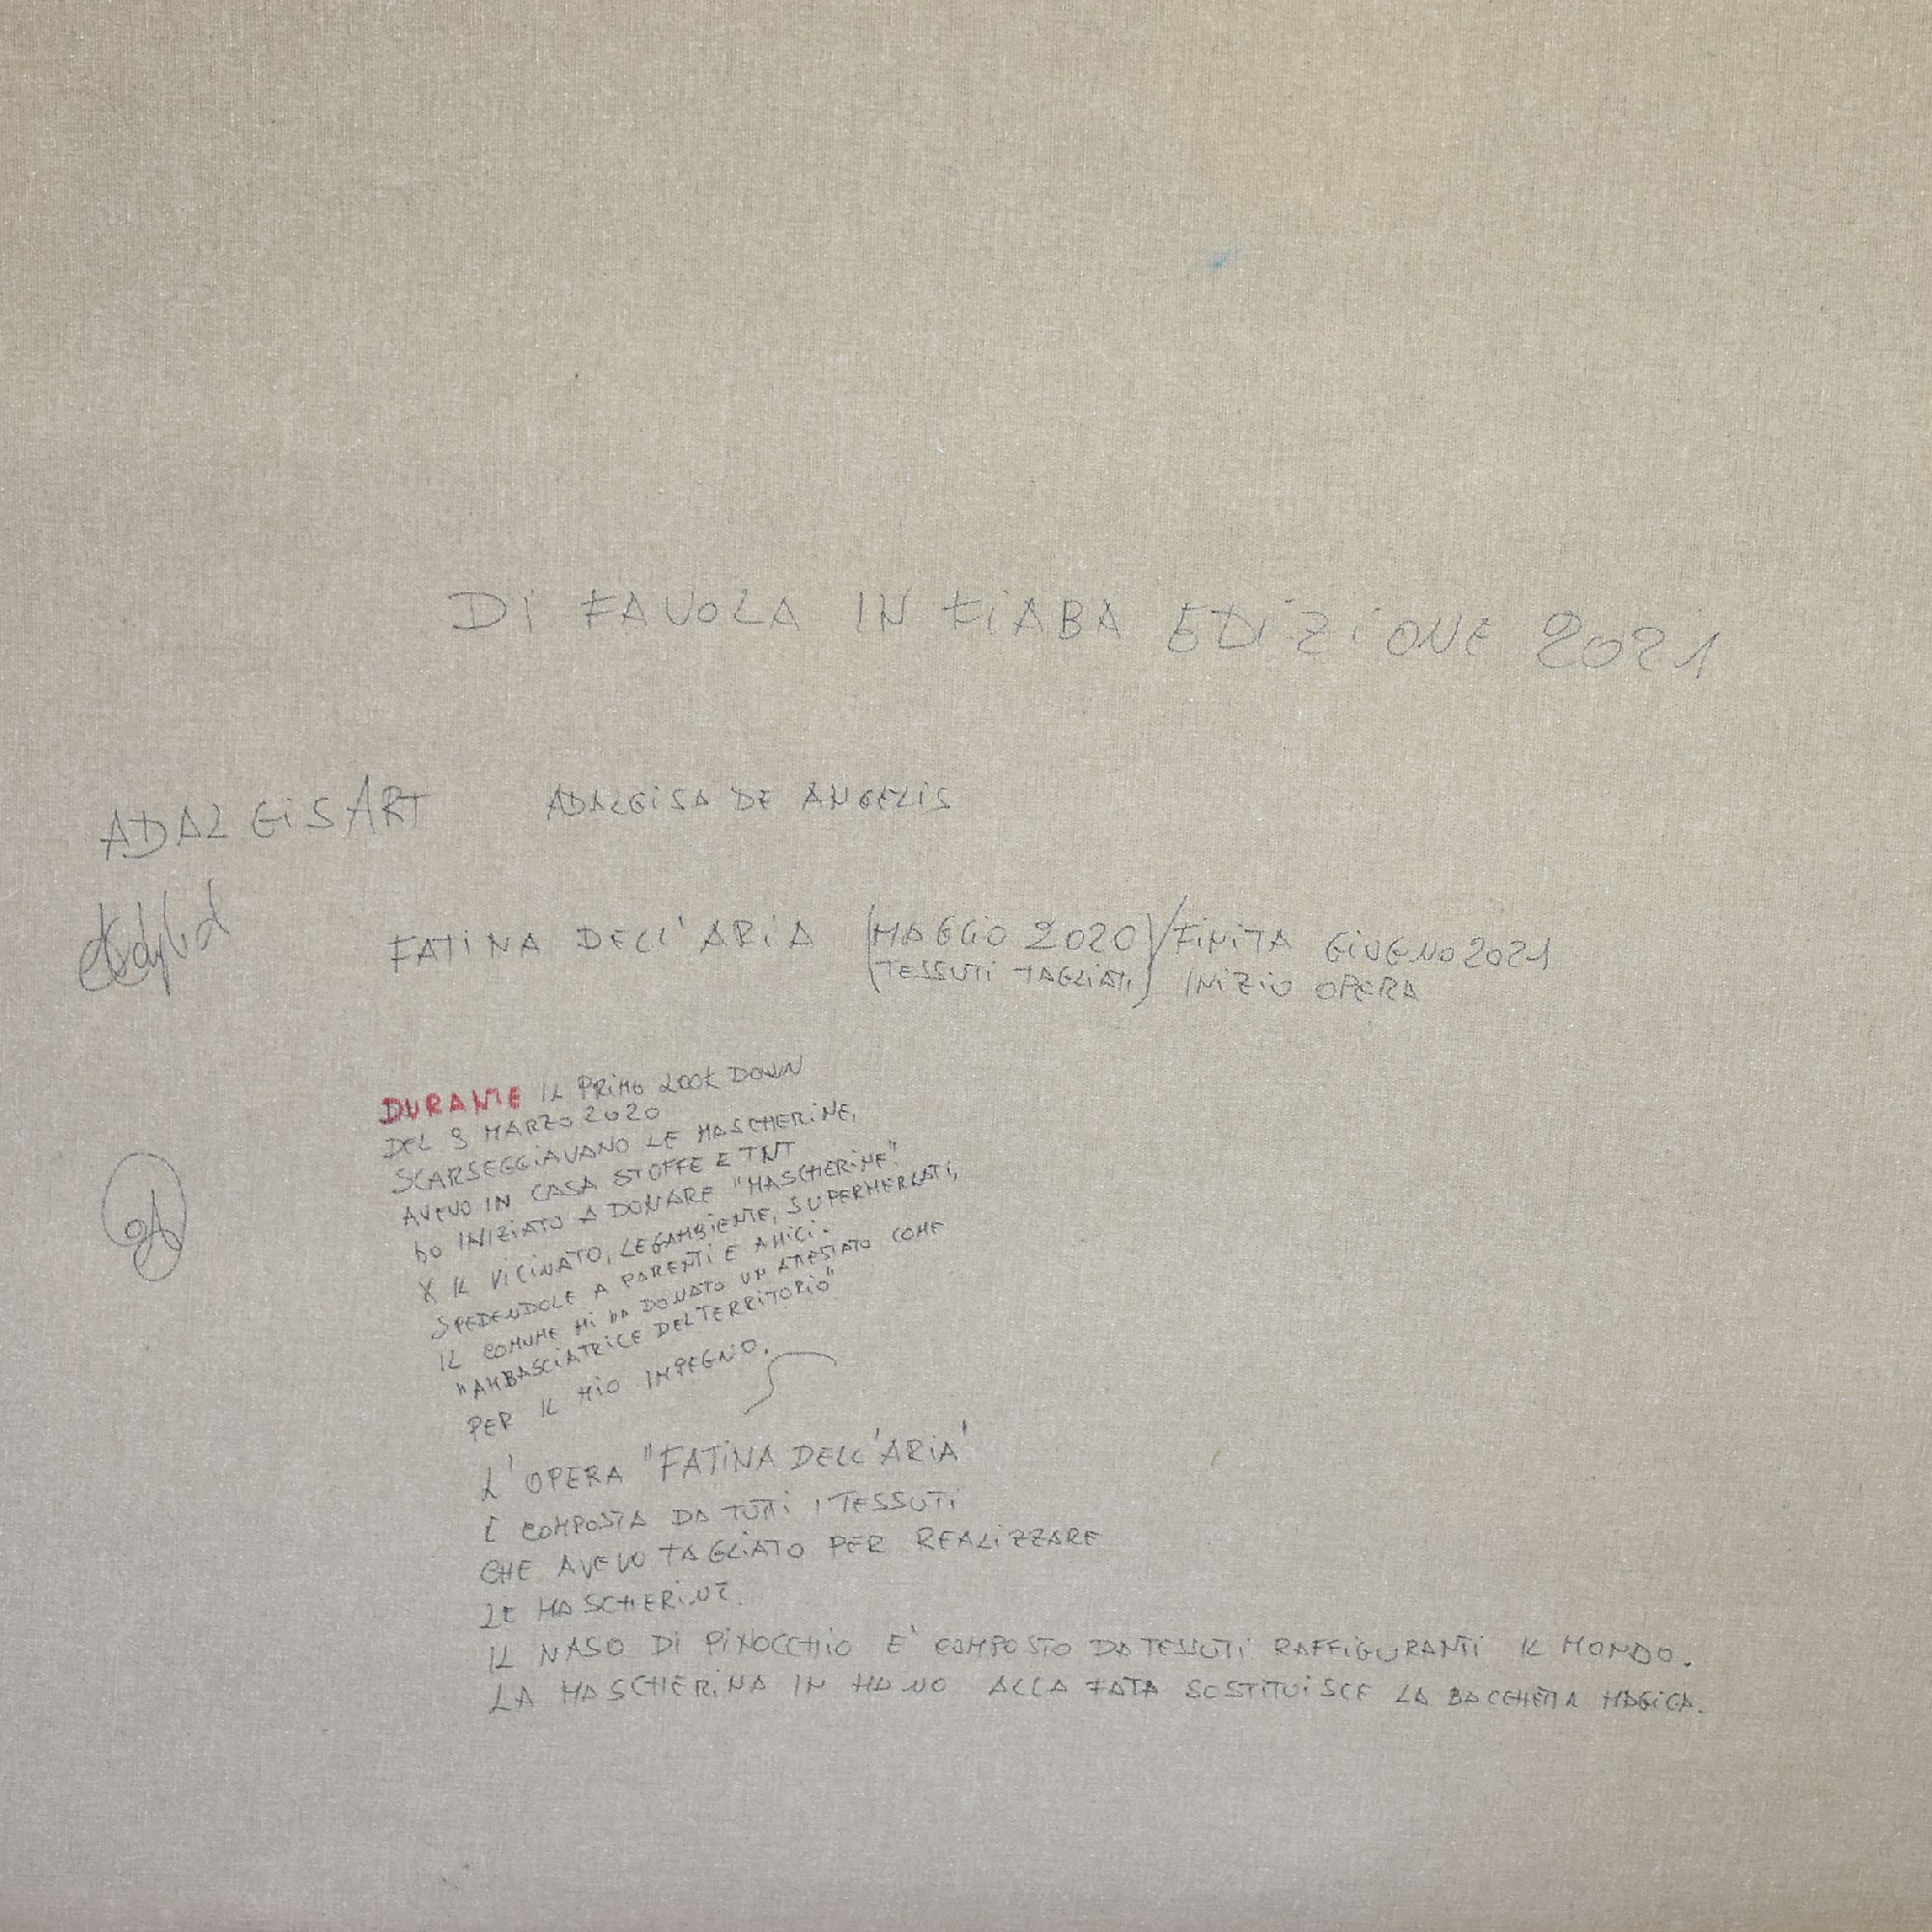 DI FAVOLA IN FIABA EDIZIONE 2021
ADALGISART ADALGISA DE ANGELIS
FATINA DELL'ARIA (MAGGIO 2020)/FINITA GIUGNO 2021
(TESSUTI TAGLIATI) INIZIO OPERA
DURANTE IL PRIMO LOOK DOWN
DEL 9 MARZO 2020
SCARSEGGIAVANO LE MASCHERINE,
AVEVO IN CASA STOFFE E TNT
HO INIZIATO A DONARE "MASCHERINE"
X IL VICINATO, LEGAMBIENTE, SUPERMERCATI,
SPEDENDOLE A PARENTI E AMICI.
IL COMUNE MI HA DONATO UN ATTESTATO COME
"AMBASCIATRICE DEL TERRITORIO"
PER IL MIO IMPEGNO.
L'OPERA "FATINA DELL'ARIA'
E COMPOSTA DA TUTTI I TESSUTI
CHE AVEVO TAGLIATO PER REALIZZARE
LE MASCHERINE.
IL NASO DI PINOCCHIO E' COMPOSTO DA TESSUTI RAFFIGURANTI IL MONDO.
LA MASCHERINA IN MANO ALLA FATA SOSTITUISCE LA BACCHETTA MAGICA.